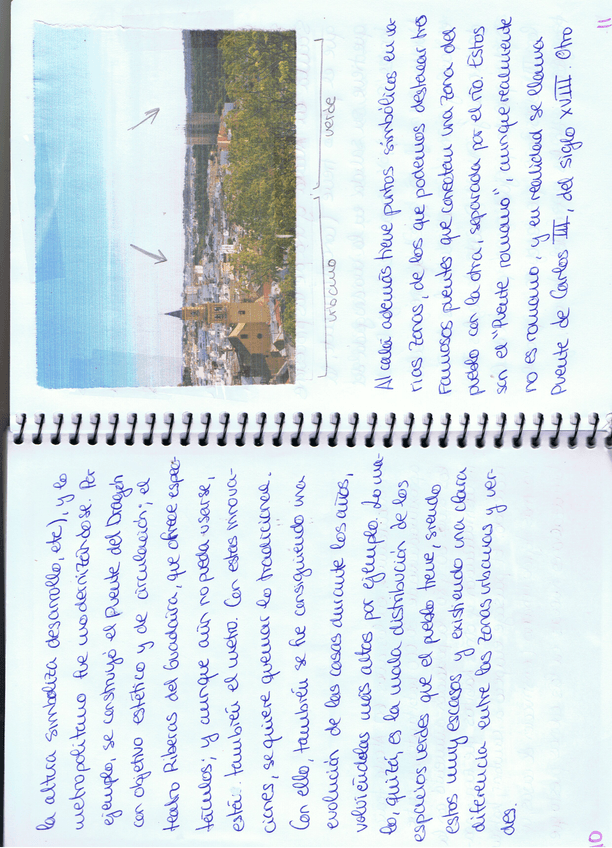 la altura simboliza desarrollo, etc), y lo
metropolitano fue modernizándose. Por
ejemplo, se construyó el Puente del Dragón
con objetivo estético y de circulación; el
teatro Riberas del Guadaíra, que ofrece espec-
táculos; y aunque aún no pueda usarse,
está también el metro. Con estas innova-
ciones, se quiere quemar lo tradicional.
Con ello, también se fue consiguiendo una
evolución de las casas durante los años,
volviéndolas más altas por ejemplo. Lo ma-
lo, quizá, es la mala distribución de los
espacios verdes que el pueblo tiene, siendo
estos muy escasos y existiendo una clara
diferencia entre las zonas urbanas y ver-
des.
10
urbano
verde
Alcalá además tiene puntos simbólicos en va-
rias zonas, de los que podemos destacar tres
famosos puentes que conectan una zona del
pueblo con la otra, separada por el río. Estos
son el "Puente romano", aunque realmente
no es romano, y en realidad se llama
Puente de Carlos III, del siglo XVIII. Otro
11